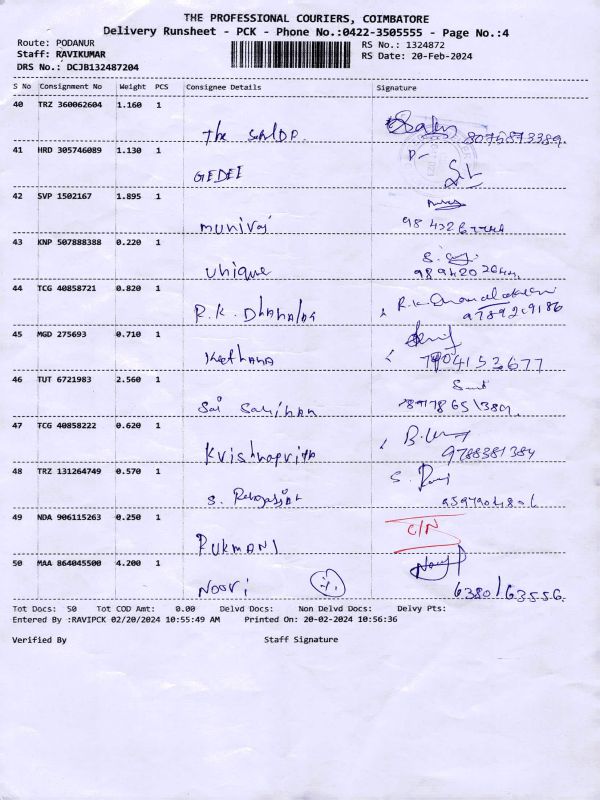 THE PROFESSIONAL COURIERS, COIMBATORE
Delivery Runsheet - PCK - Phone No.:0422-3505555 - Page No.:4
Route: PODANUR
RS No.: 1324872
Staff: RAVIKUMAR
RS Date: 20-Feb-2024
DRS No.: DCJB132487204
S No Consignment No Weight PCS Consignee Details Signature
40 TRZ 360062604 1.160 1
The 8075873389.
41 HRD 305746089 1.130 1
GEDEE
42 SVP 1502167 1.895 1
Muniraj
43 KNP 507888388 0.220 1
Unique
44 TCG 40858721 0.820 1
R.K. R.K. 9789209186
45 MGD 275693 0.710 1
Keethana 7904152677
46 TUT 6721983 2.560 1
Sai
47 TCG 40858222 0.620 1
Krishnapriya 9788381384
48 TRZ 131264749 0.570 1
S.
49 NDA 906115263 0.250 1
RUKMANI C/N
50 MAA 864045500 4.200 1
Noori 6380163556.
Tot Docs: 50 Tot COD Amt: 0.00 Delvd Docs: Non Delvd Docs: Delvy Pts:
Entered By :RAVIPCK 02/20/2024 10:55:49 AM Printed On: 20-02-2024 10:56:36
Verified By Staff Signature